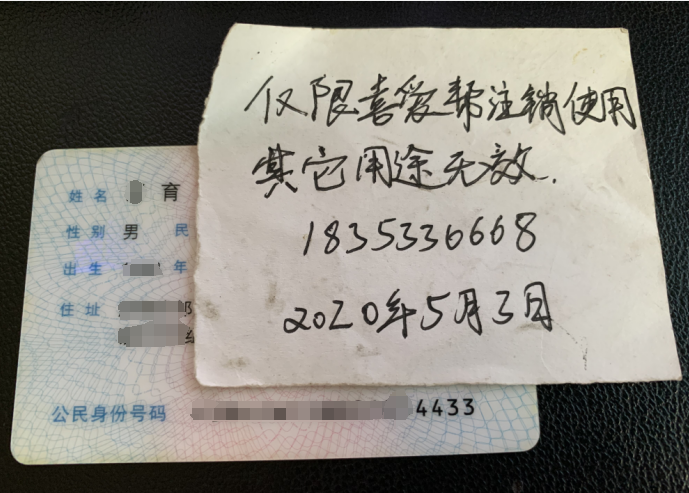 仅限喜爱帮注销使用
其它用途无效.
1835336668
2020年5月3日
姓名 育
性别 男 民
出生 年
住址
公民身份号码 4433